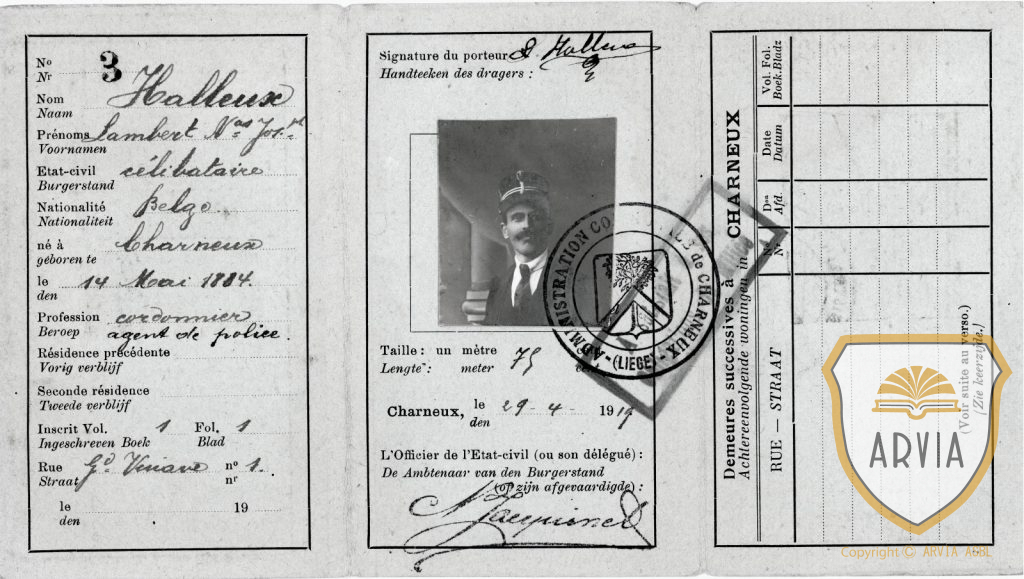 No
Nr 3
Nom
Naam Halleux
Prénoms Lambert Nas Jos.
Voornamen
Etat-civil célibataire
Burgerstand
Nationalité Belge
Nationaliteit
né à Charneux
geboren te
le 14 Mai 1884.
den
Profession cordonnier
Beroep agent de police.
Résidence précédente
Vorig verblijf
Seconde résidence
Tweede verblijf
Inscrit Vol. 1 Fol. 1
Ingeschreven Boek Blad
Rue Gd Vinave no 1.
Straat nr
le 19
den
Signature du porteur Halleux
Handteeken des dragers :
ADMINISTRATION CO LE de CHARNEUX
(LIEGE)
Taille : un mètre 75
Lengte : meter
Charneux, le 29-4- 1919
den
L'Officier de l'Etat-civil (ou son délégué) :
De Ambtenaar van den Burgerstand
(of zijn afgevaardigde) :
Demeures successives à CHARNEUX
Achtereenvolgende woningen in
RUE — STRAAT
No
Nr
Don
Afd.
Date
Datum
Vol. Fol.
Boek. Bladz
(Voir suite au verso.)
(Zie keerzijde.)
ARVIA
Copyright © ARVIA ASBL